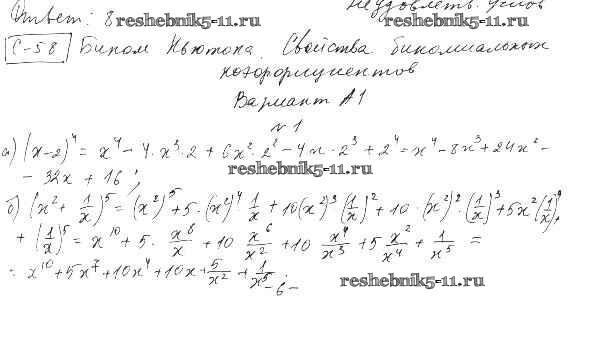 Ответ: 8 reshebnik5-11.ru неудовлетв. услов
reshebnik5-11.ru
С-58 Бином Ньютона. Свойства биномиальных
коэффициентов
Вариант А1
№1
а) (x-2)⁴ = x⁴ - 4·x³·2 + 6x²·2² - 4x·2³ + 2⁴ = x⁴ - 8x³ + 24x² -
- 32x + 16;
reshebnik5-11.ru
б) (x² + 1/x)⁵ = (x²)⁵ + 5·(x²)⁴ 1/x + 10(x²)³(1/x)² + 10·(x²)²·(1/x)³ + 5x²(1/x)⁴ +
+ (1/x)⁵ = x¹⁰ + 5· x⁸/x + 10 x⁶/x² + 10 x⁴/x³ + 5 x²/x⁴ + 1/x⁵ =
= x¹⁰ + 5x⁷ + 10x⁴ + 10x + 5/x² + 1/x⁵;
- 6 -
reshebnik5-11.ru